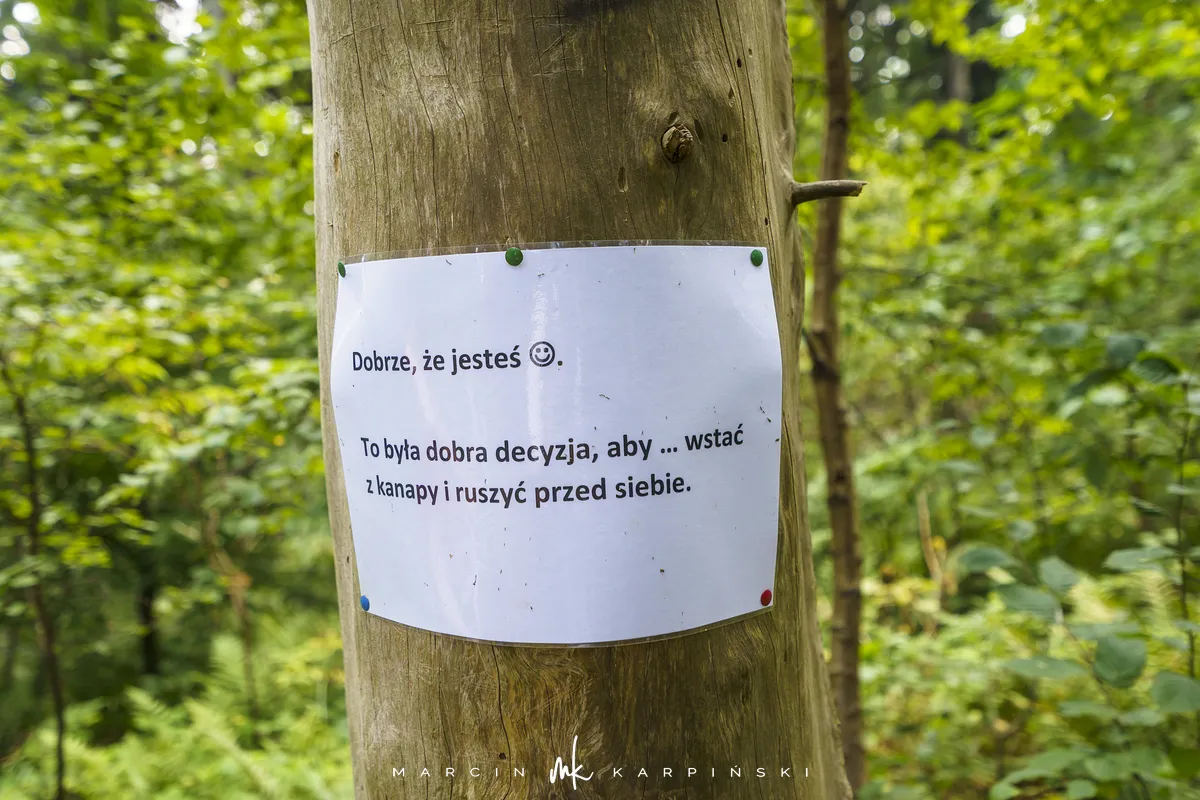 Dobrze, że jesteś ☺.
To była dobra decyzja, aby ... wstać
z kanapy i ruszyć przed siebie.
MARCIN MK KARPIŃSKI